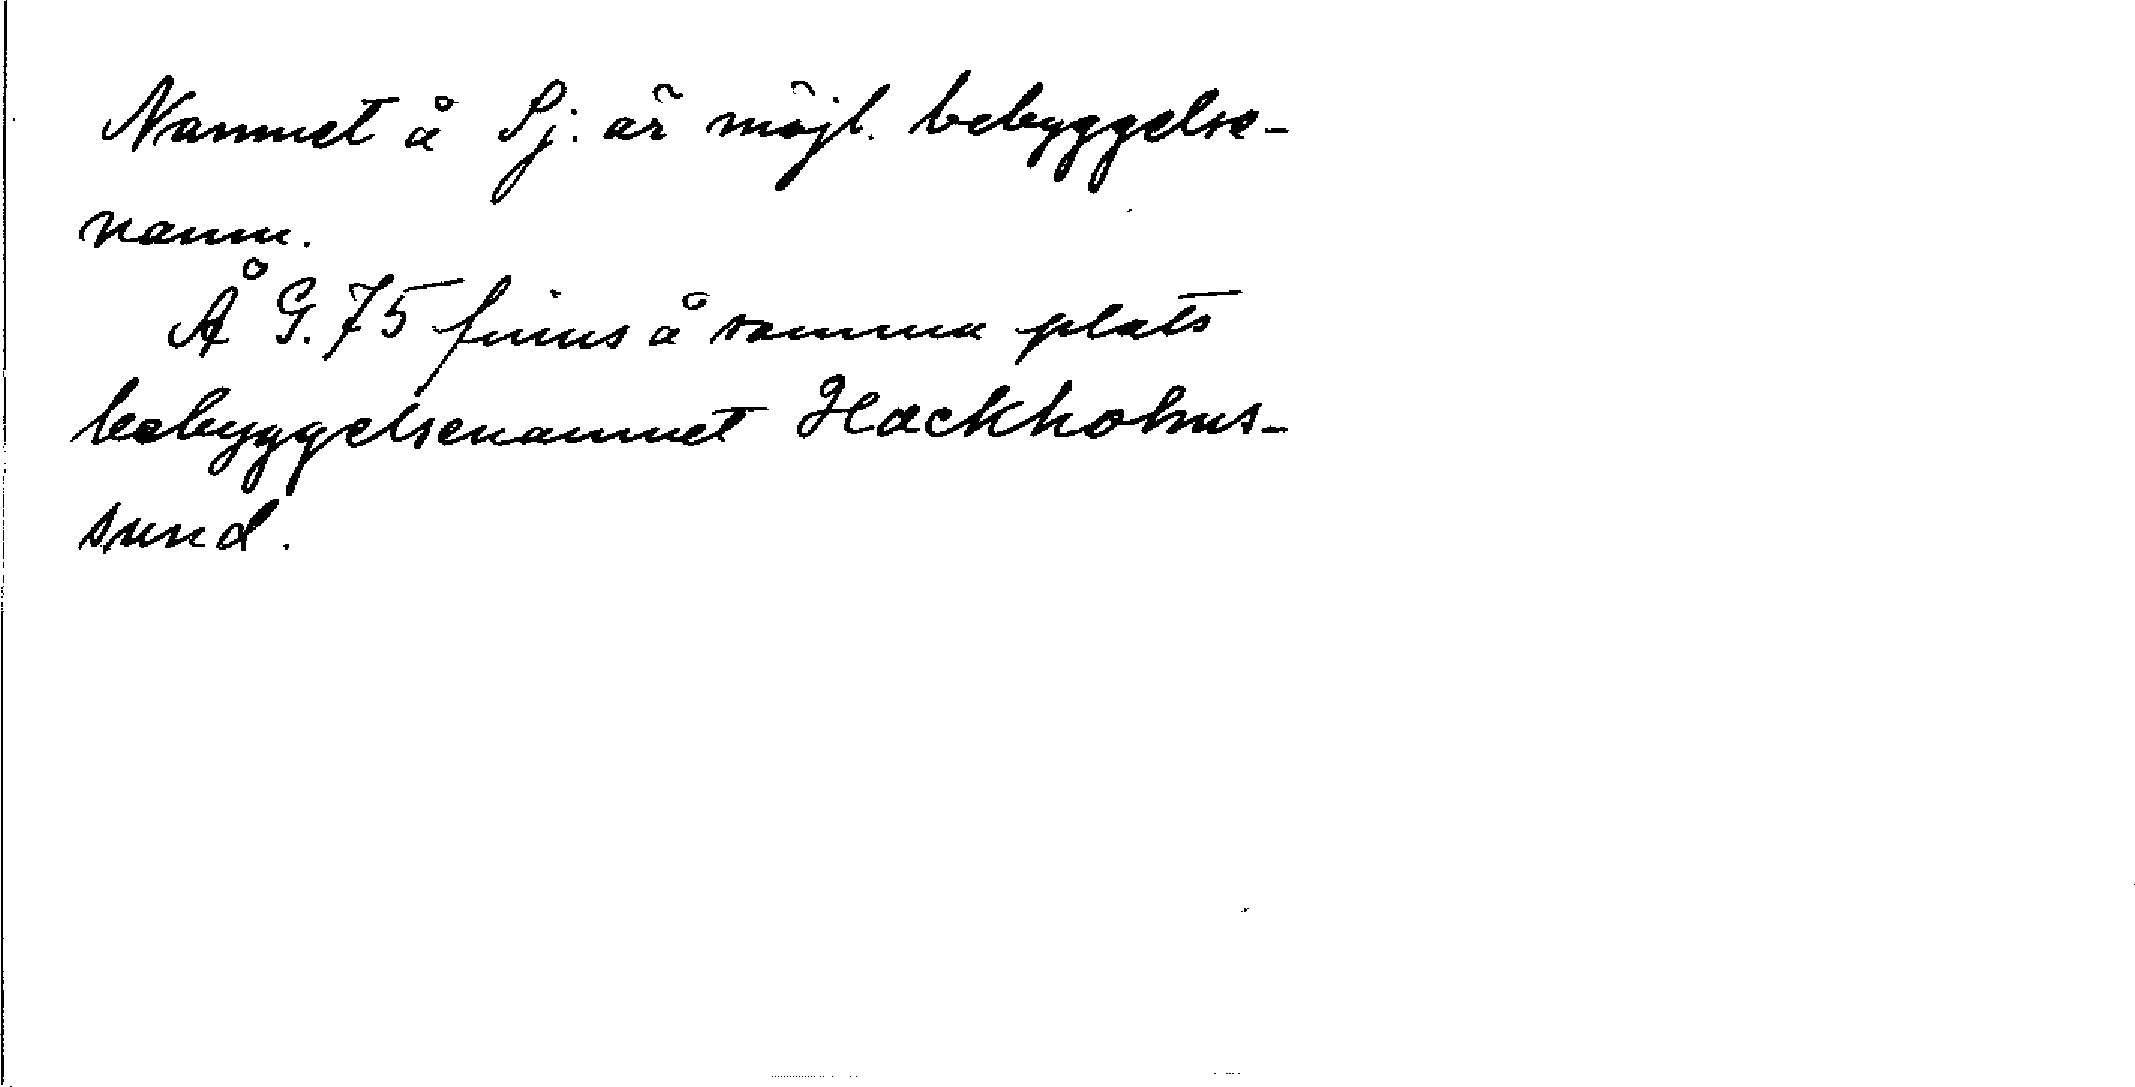 Namnet å Sj. är möjl. bebyggelse-
namn.
Å G. 75 finns å samma plats
bebyggelsenamnet Hackholms-
sund.